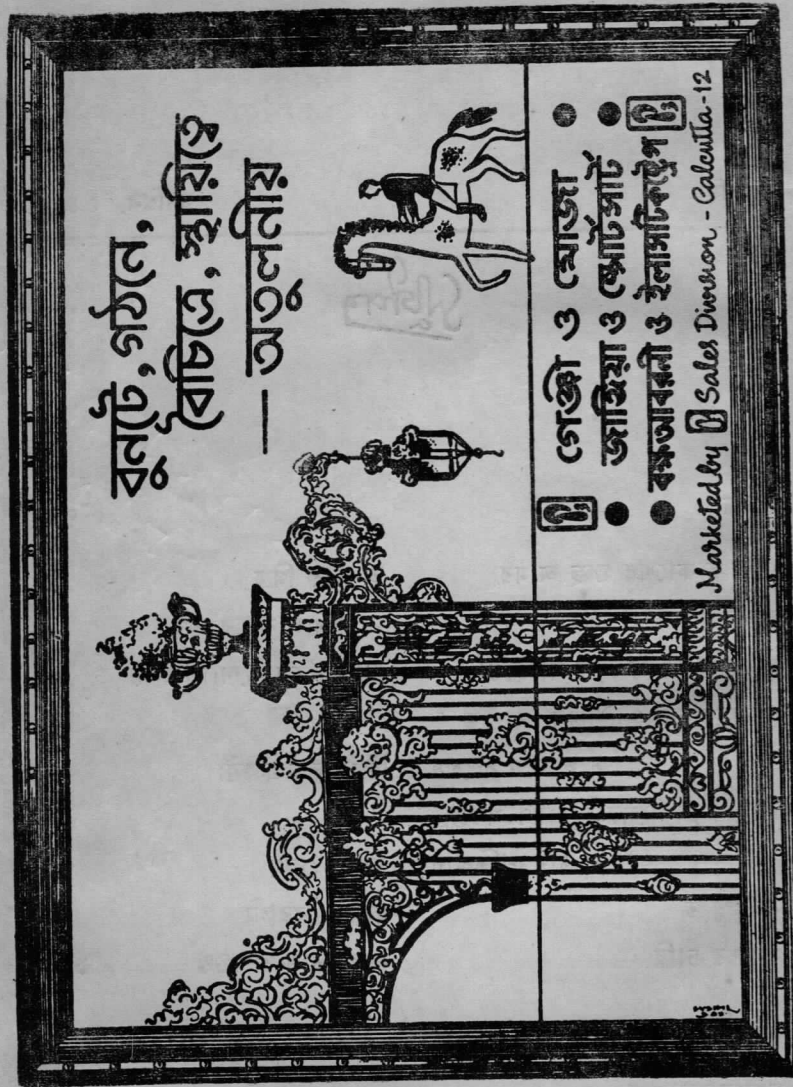 বুনটে, গঠনে,
বৈচিত্রে, স্থায়িত্বে
— অতুলনীয়
গেঞ্জী ও মোজা
জাঙ্গিয়া ও স্পোর্টসার্ট
বক্ষআবরনী ও ইলাসটিকট্রেপ
Marketed by Sales Division - Calcutta-12